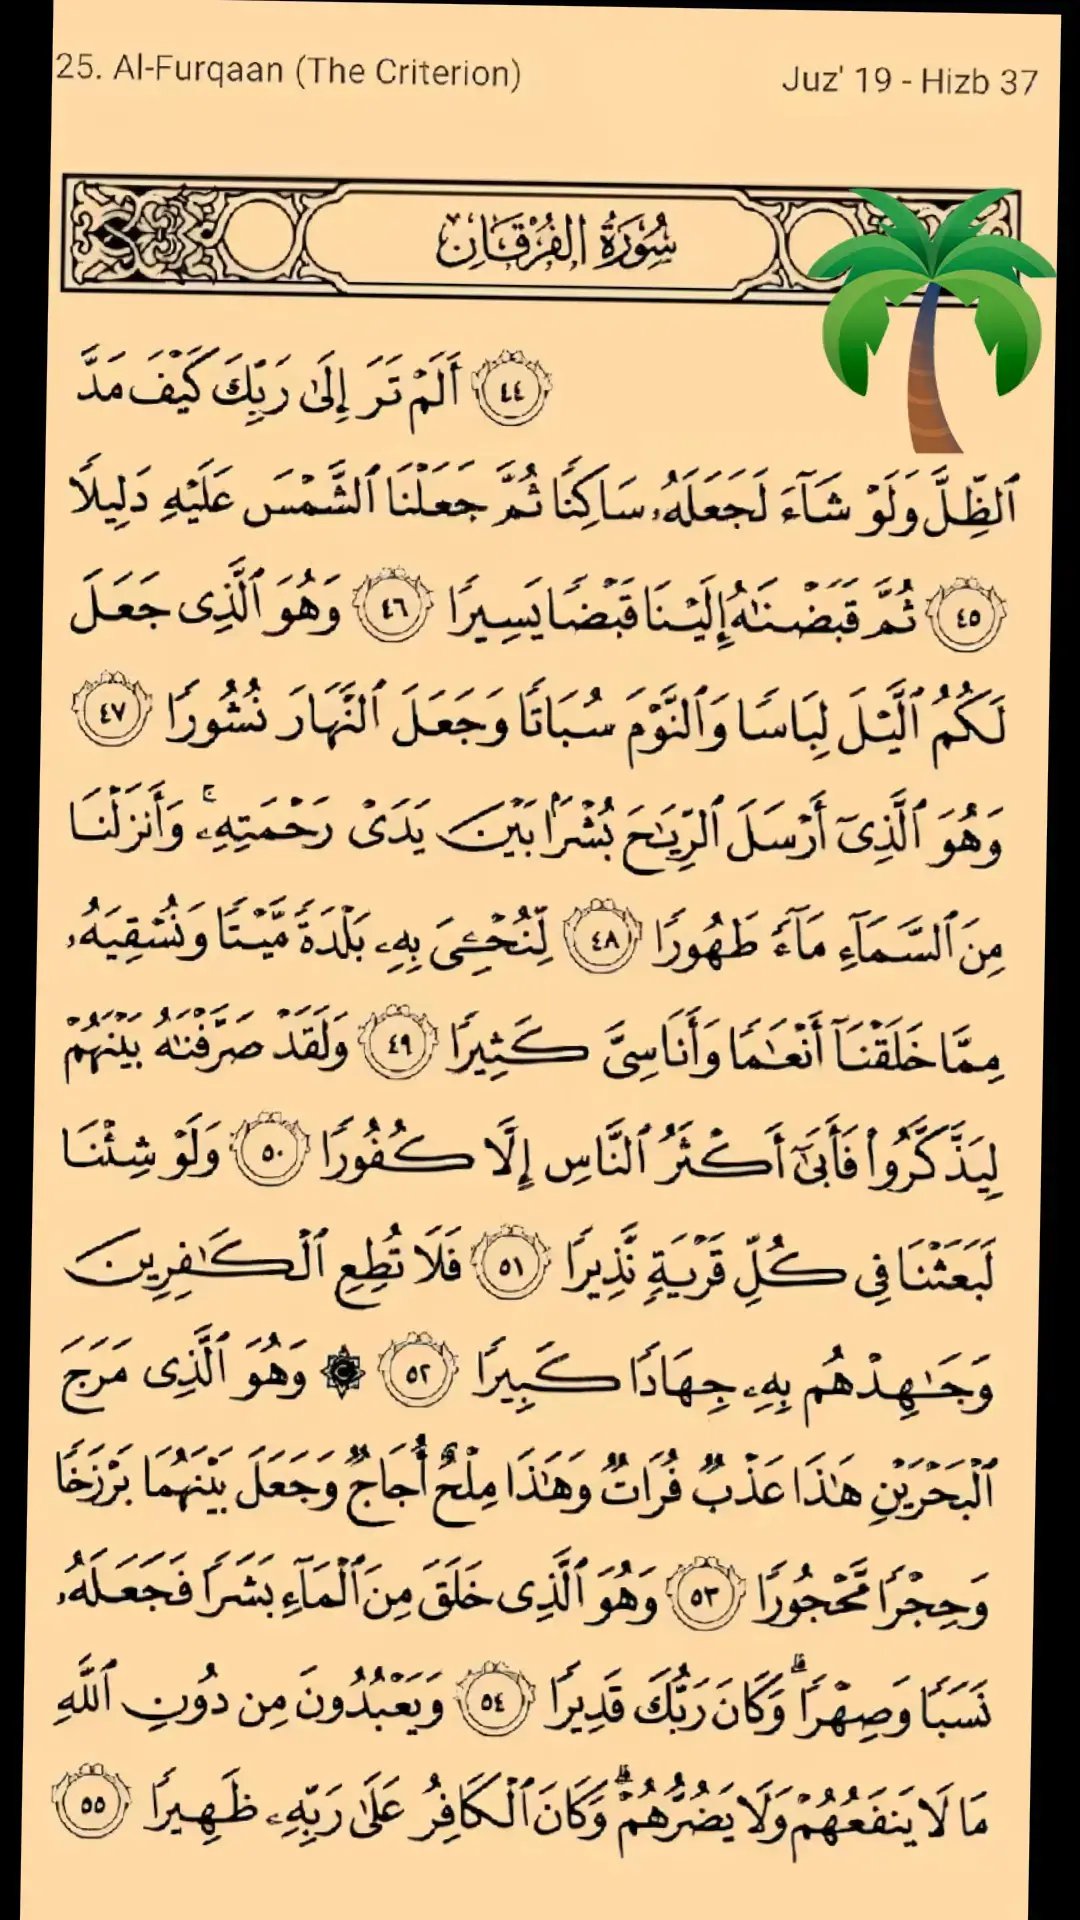 25. Al-Furqaan (The Criterion)
Juz' 19 - Hizb 37
سُورَةُ الفُرْقَان
٤٤ أَلَمْ تَرَ إِلَىٰ رَبِّكَ كَيْفَ مَدَّ
ٱلظِّلَّ وَلَوْ شَآءَ لَجَعَلَهُۥ سَاكِنًا ثُمَّ جَعَلْنَا ٱلشَّمْسَ عَلَيْهِ دَلِيلًا
٤٥ ثُمَّ قَبَضْنَٰهُ إِلَيْنَا قَبْضًا يَسِيرًا ٤٦ وَهُوَ ٱلَّذِى جَعَلَ
لَكُمُ ٱلَّيْلَ لِبَاسًا وَٱلنَّوْمَ سُبَاتًا وَجَعَلَ ٱلنَّهَارَ نُشُورًا ٤٧
وَهُوَ ٱلَّذِىٓ أَرْسَلَ ٱلرِّيَٰحَ بُشْرًۢا بَيْنَ يَدَىْ رَحْمَتِهِۦ ۚ وَأَنزَلْنَا
مِنَ ٱلسَّمَآءِ مَآءً طَهُورًا ٤٨ لِّنُحْۦِىَ بِهِۦ بَلْدَةً مَّيْتًا وَنُسْقِيَهُۥ
مِمَّا خَلَقْنَآ أَنْعَٰمًا وَأَنَاسِىَّ كَثِيرًا ٤٩ وَلَقَدْ صَرَّفْنَٰهُ بَيْنَهُمْ
لِيَذَّكَّرُوا۟ فَأَبَىٰٓ أَكْثَرُ ٱلنَّاسِ إِلَّا كُفُورًا ٥٠ وَلَوْ شِئْنَا
لَبَعَثْنَا فِى كُلِّ قَرْيَةٍ نَّذِيرًا ٥١ فَلَا تُطِعِ ٱلْكَٰفِرِينَ
وَجَٰهِدْهُم بِهِۦ جِهَادًا كَبِيرًا ٥٢ ۞ وَهُوَ ٱلَّذِى مَرَجَ
ٱلْبَحْرَيْنِ هَٰذَا عَذْبٌ فُرَاتٌ وَهَٰذَا مِلْحٌ أُجَاجٌ وَجَعَلَ بَيْنَهُمَا بَرْزَخًا
وَحِجْرًا مَّحْجُورًا ٥٣ وَهُوَ ٱلَّذِى خَلَقَ مِنَ ٱلْمَآءِ بَشَرًا فَجَعَلَهُۥ
نَسَبًا وَصِهْرًا ۗ وَكَانَ رَبُّكَ قَدِيرًا ٥٤ وَيَعْبُدُونَ مِن دُونِ ٱللَّهِ
مَا لَا يَنفَعُهُمْ وَلَا يَضُرُّهُمْ ۗ وَكَانَ ٱلْكَافِرُ عَلَىٰ رَبِّهِۦ ظَهِيرًا ٥٥